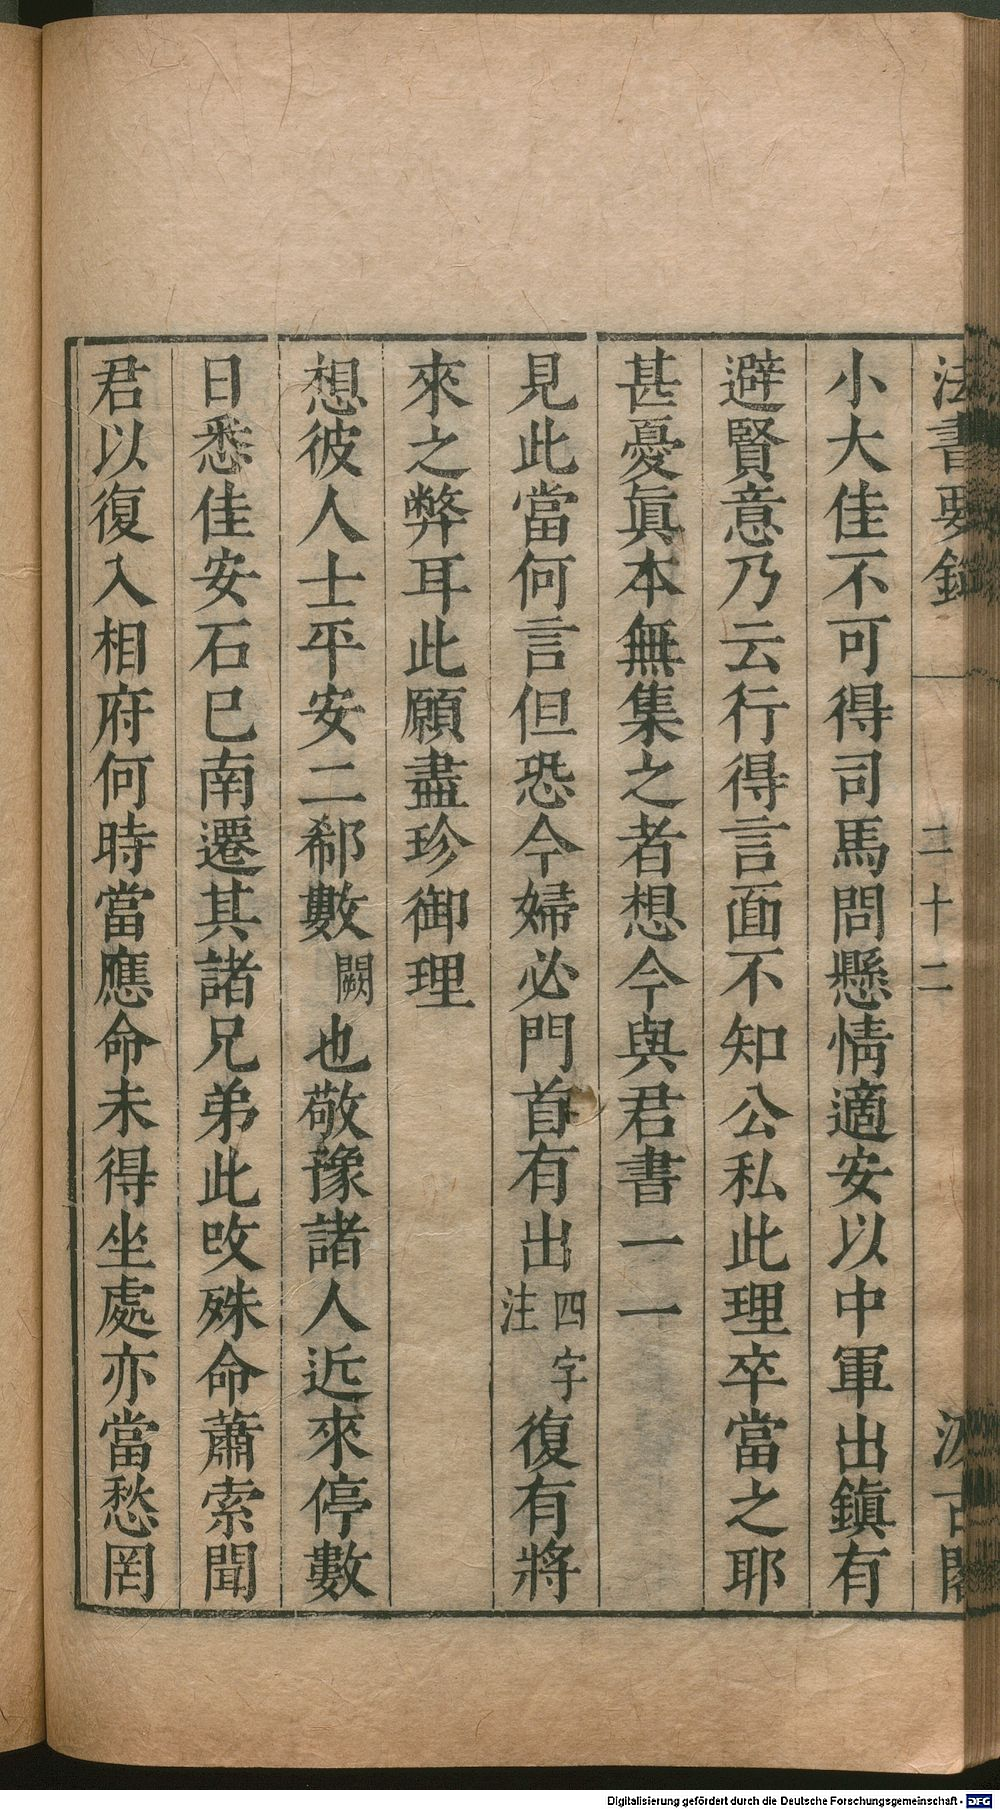 法書要錄 二十二 汲古閣
小大佳不可得司馬問懸情適安以中軍出鎮有
避賢意乃云行得言面不知公私此理卒當之耶
甚憂眞本無集之者想今與君書一一
見此當何言但恐今婦必門首有出四字注復有將
來之弊耳此願盡珍御理
想彼人士平安二郗數闕也敬豫諸人近來停數
日悉佳安石已南遷其諸兄弟此改殊命蕭索聞
君以復入相府何時當應命未得坐處亦當愁罔
Digitalisierung gefördert durch die Deutsche Forschungsgemeinschaft - DFG